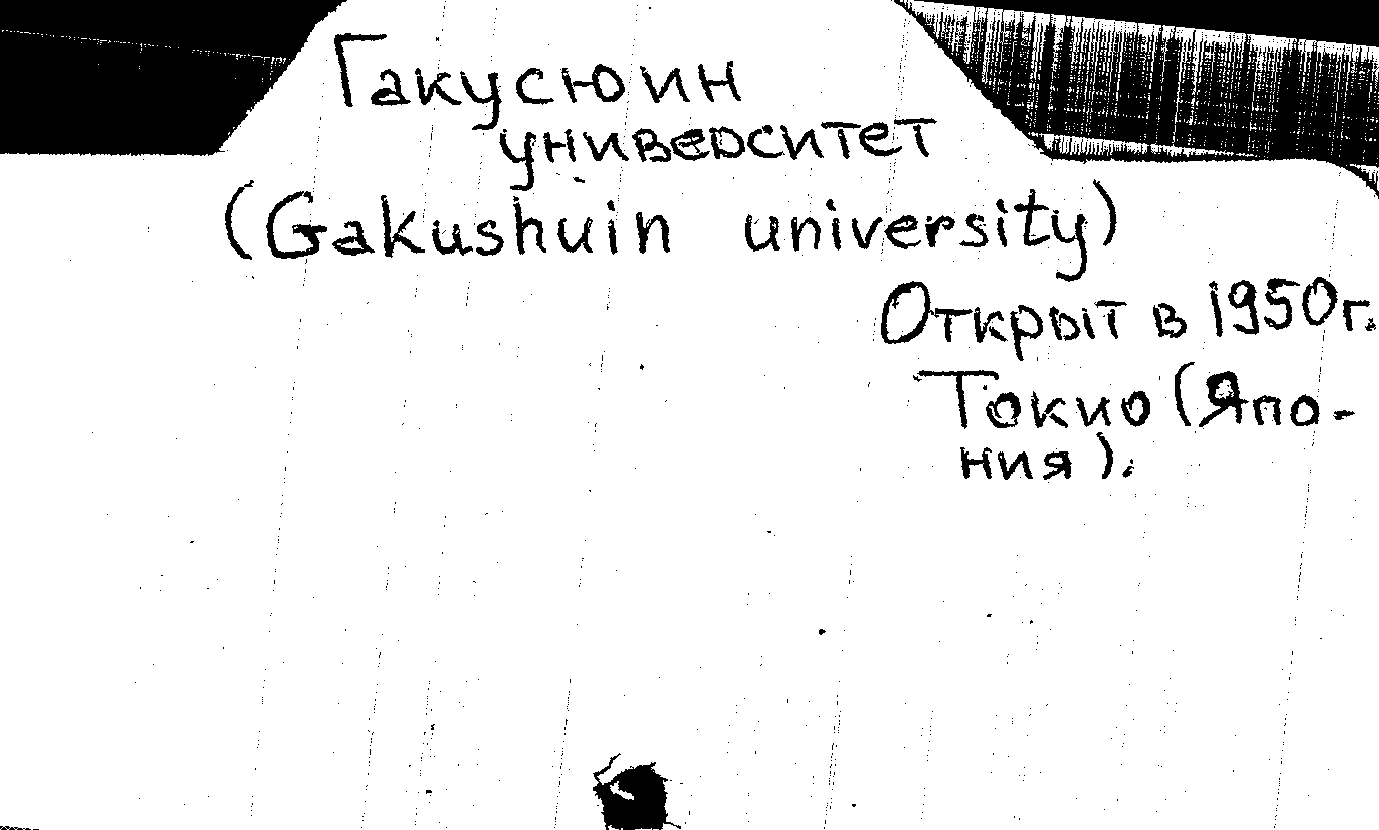 Гакусюин
университет
(Gakushuin university)
Открыт в 1950г.
Токио (Япо-
ния).